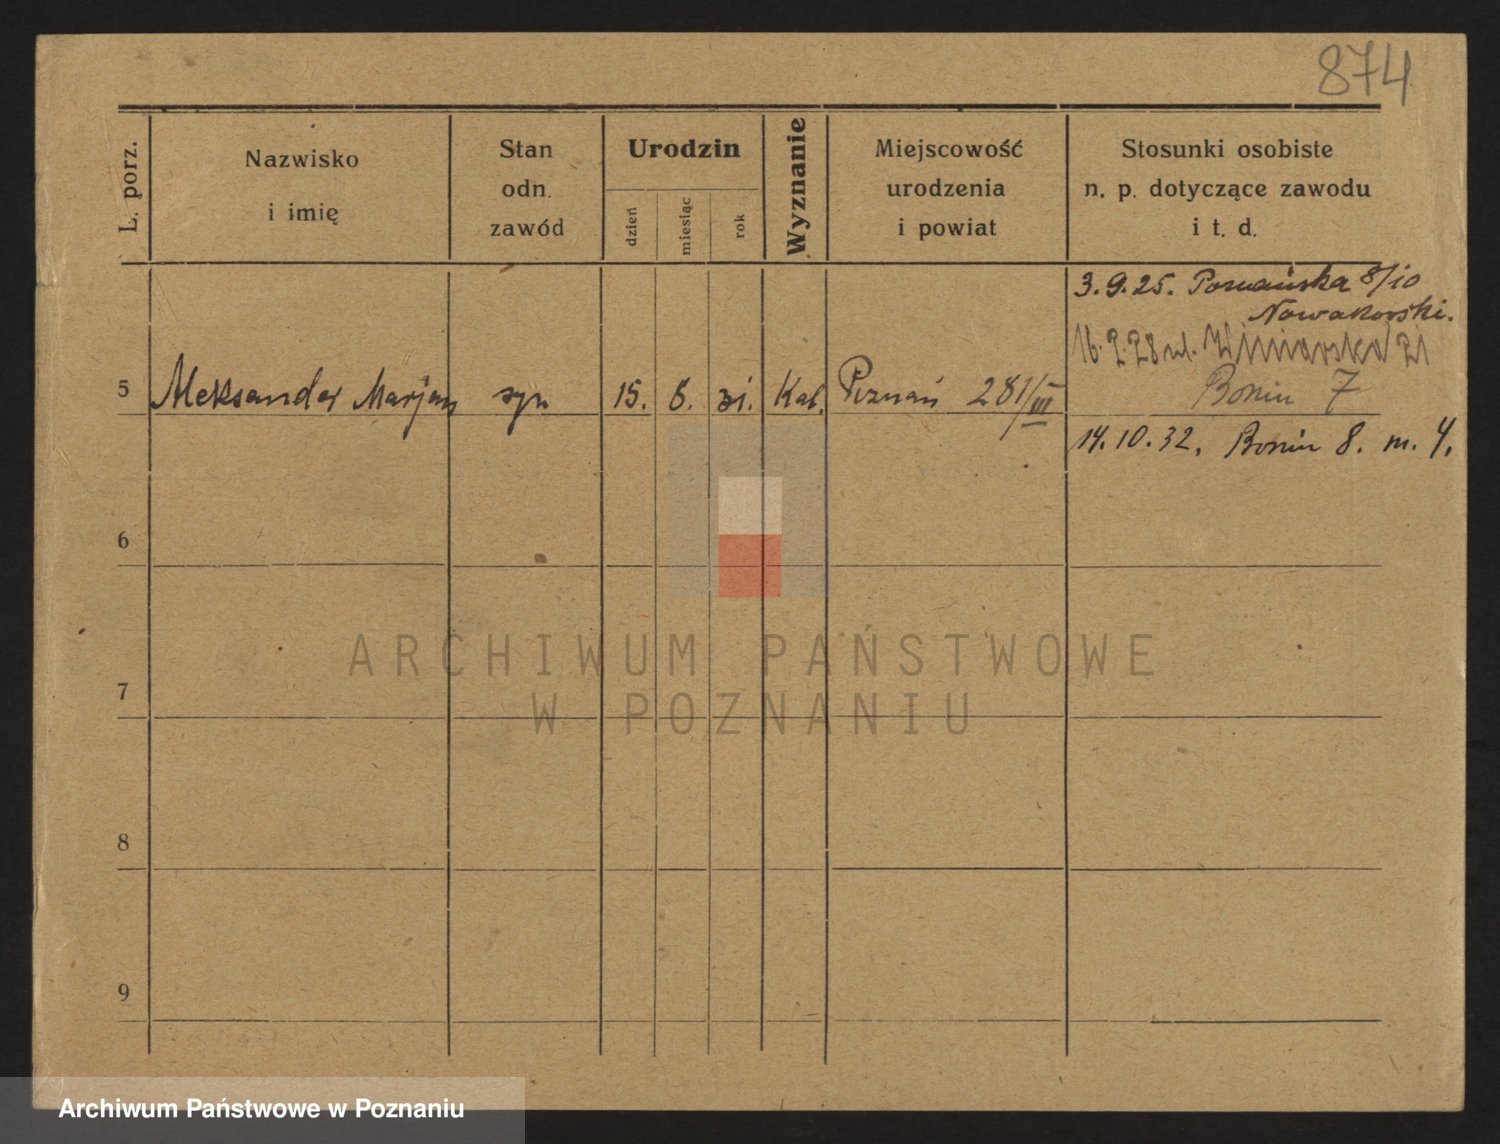 874
L. porz.
Nazwisko
i imię
Stan
odn.
zawód
Urodzin
dzień
miesiąc
rok
Wyznanie
Miejscowość
urodzenia
i powiat
Stosunki osobiste
n. p. dotyczące zawodu
i t. d.
3.9.25. Poznańska 8/10
Nowakowski.
16. 2. 28 ul. Winiarska 21
Bonin 7
5 Aleksander Marjan syn 15. 8. 31. Kat. Poznań 281/III
14.10.32. Bonin 8. m. 4.
6
7
8
9
ARCHIWUM PAŃSTWOWE
W POZNANIU
Archiwum Państwowe w Poznaniu